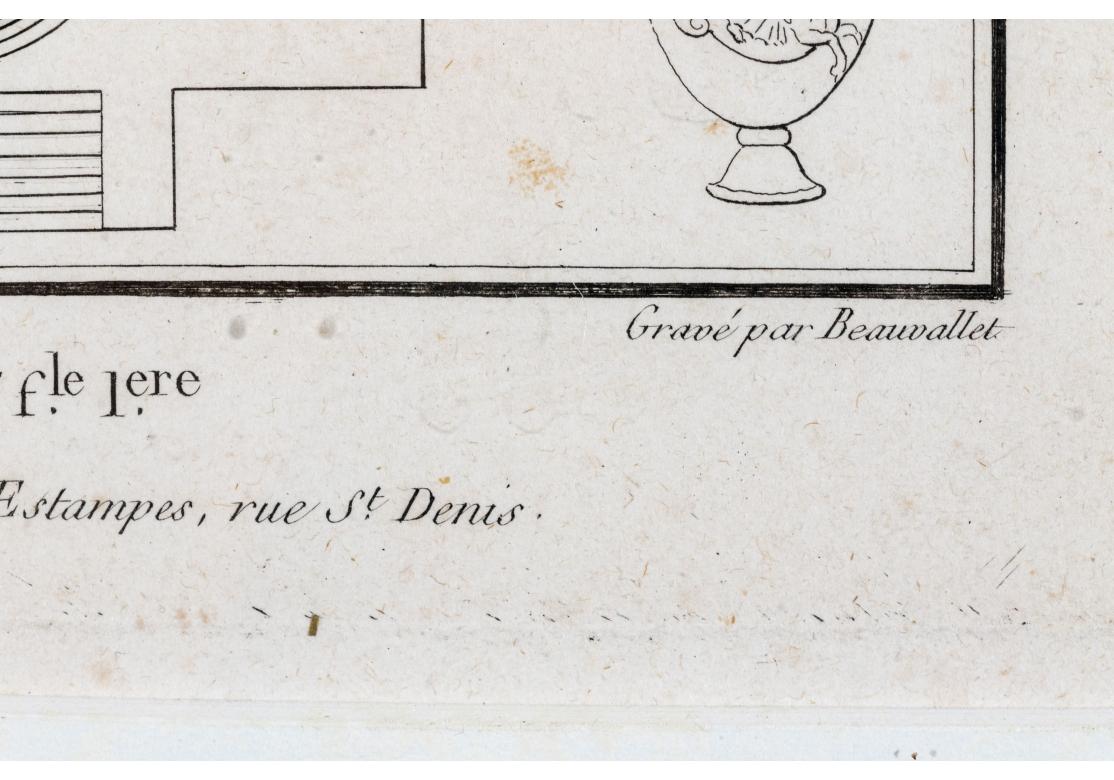 Gravé par Beauvallet
f.le 1.ere
Estampes, rue St. Denis.